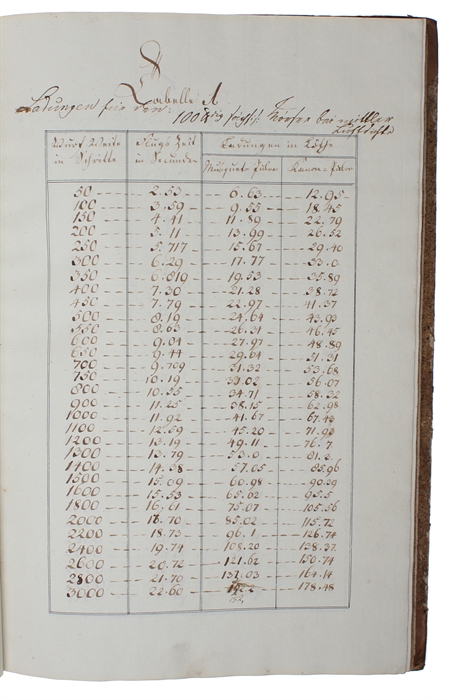 Tabelle A
Ladungen für den 100 ℔ Mörser bei mittler
Luftdichte
Wurf Weite Flugs Zeit Ladungen in Lothe
in Schritte in Secunde Musquet-Pulver Kanon-Pulver
50 2.53 6.63 12.95
100 3.59 9.55 18.45
150 4.41 11.89 22.79
200 5.11 13.99 26.52
250 5.717 15.67 29.40
300 6.29 17.77 33.0
350 6.819 19.53 35.89
400 7.30 21.28 38.72
450 7.79 22.97 41.37
500 8.19 24.64 43.99
550 8.63 26.31 46.45
600 9.04 27.97 48.89
650 9.44 29.64 51.31
700 9.709 31.32 53.68
750 10.19 33.02 56.07
800 10.55 34.71 58.32
900 11.25 38.15 62.98
1000 11.92 41.67 67.48
1100 12.59 45.20 71.99
1200 13.19 49.11 76.7
1300 13.79 53.0 81.2
1400 14.38 57.05 85.96
1500 15.09 60.98 90.29
1600 15.53 65.62 95.5
1800 16.61 75.07 105.56
2000 17.70 85.02 115.72
2200 18.73 96.1 126.74
2400 19.74 108.20 138.37
2600 20.72 121.62 150.74
2800 21.70 137.03 164.14
3000 22.60 178.48